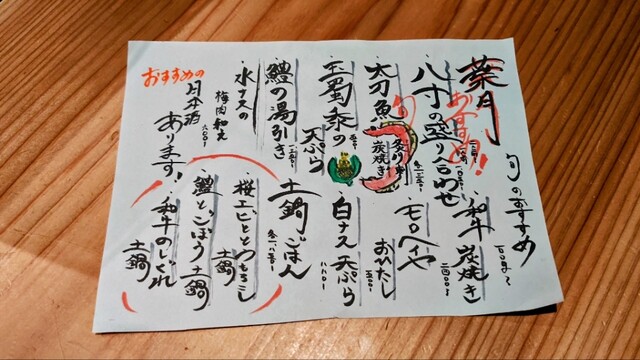 葉月
旬のおすすめ
おすすめ!
八寸の盛り合わせ
・和牛炭焼き
二四〇〇〜
・太刀魚
炙り or 炭焼き
・モロヘイヤ
おひたし
五〇〇〜
・玉蜀黍の天ぷら
・白ナス天ぷら
八八〇〜
・鱧の湯引き
・水ナスの
梅肉和え
土鍋ごはん
・桜エビととうもろこし
土鍋
・鱧とごぼう土鍋
・和牛のしぐれ
土鍋
おすすめの
日本酒
あります!